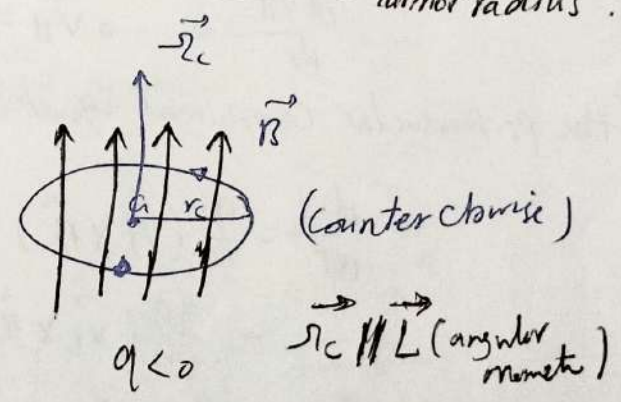 Larmor radius.
Ω⃗c
B⃗
G rc
(counter clowise)
q<0
Ω⃗c ∥ L⃗ (angular
momentm)